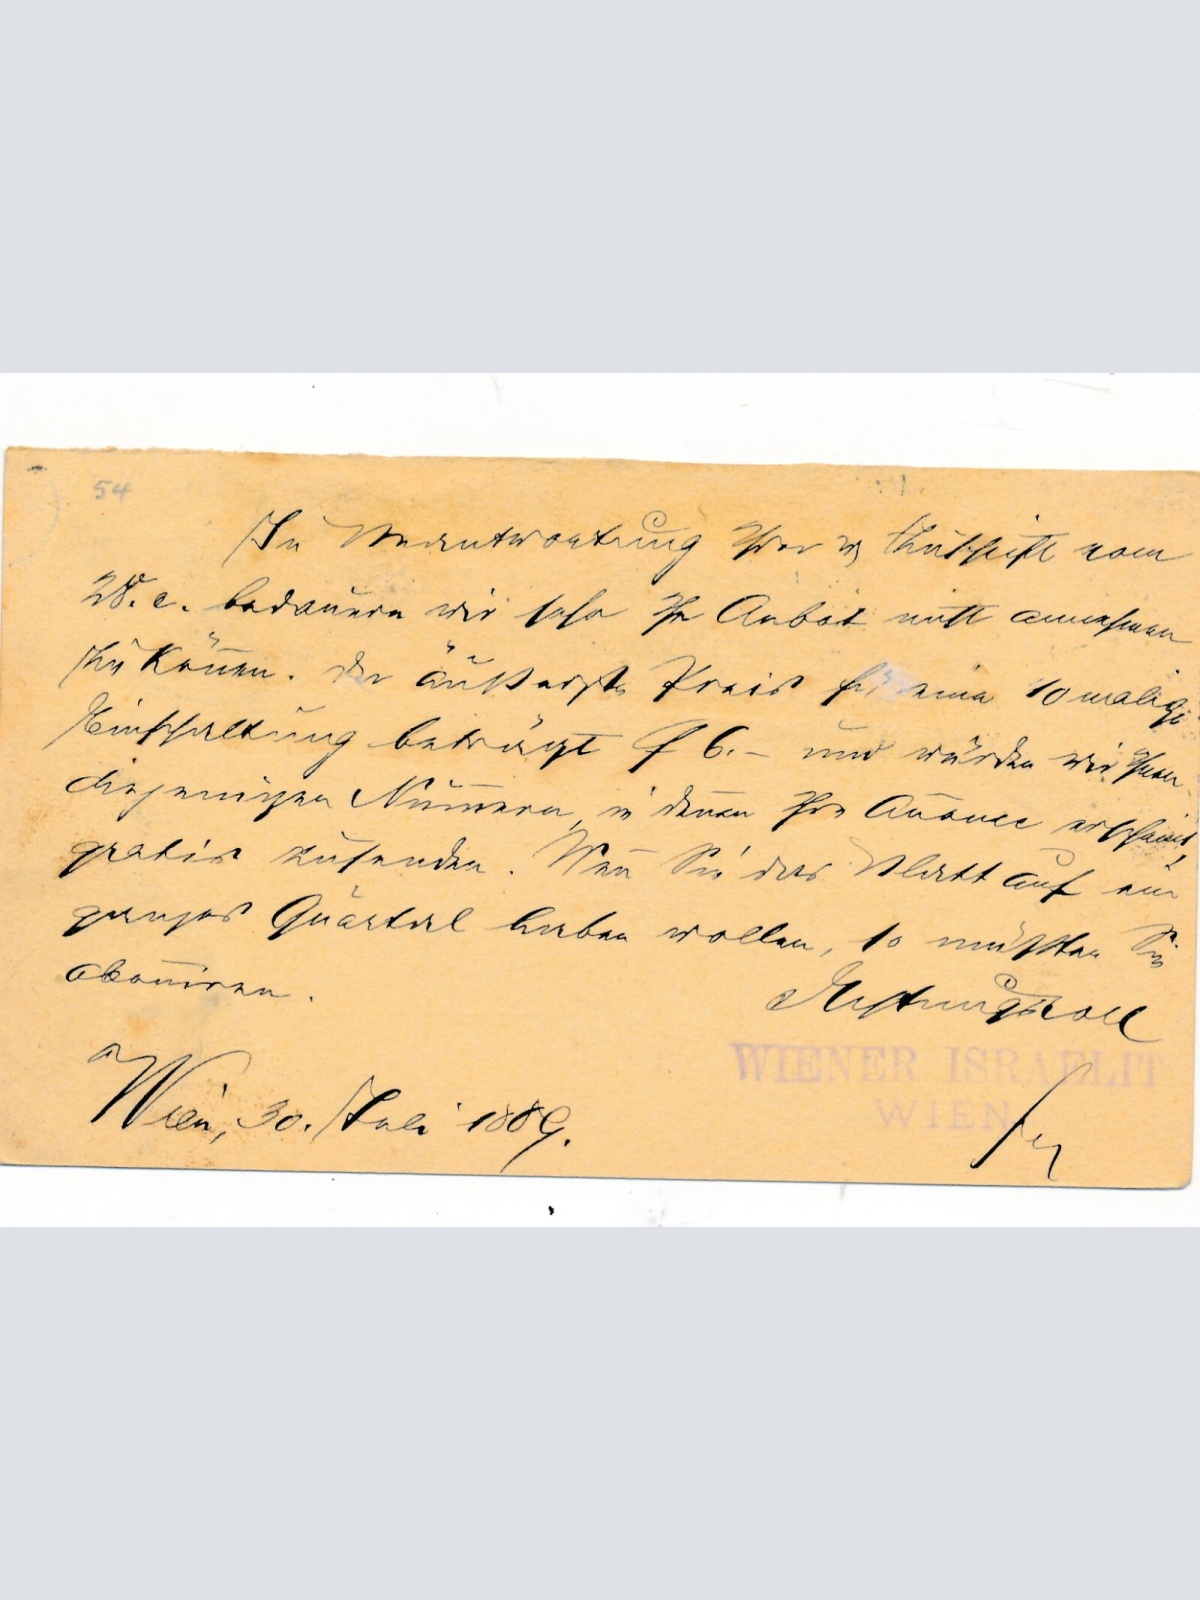 54
In Beantwortung Ihrer Zuschrift vom
28. c. bedauern wir sehr Ihr Anbot nicht annehmen
zu kön̄en. Der äußerste Preis für eine 10 malige
Einschaltung beträgt f 6.– und würden wir Ihnen
diejenigen Num̄ern, in denen Ihre Anōnce erscheint,
gratis zusenden. Wen̄ Sie das Blatt auf ein
ganzes Quartal haben wollen, so müßten Sie
abon̄iren.
Achtungsvoll
WIENER ISRAELIT
WIEN
Wien, 30. Juli 1889.